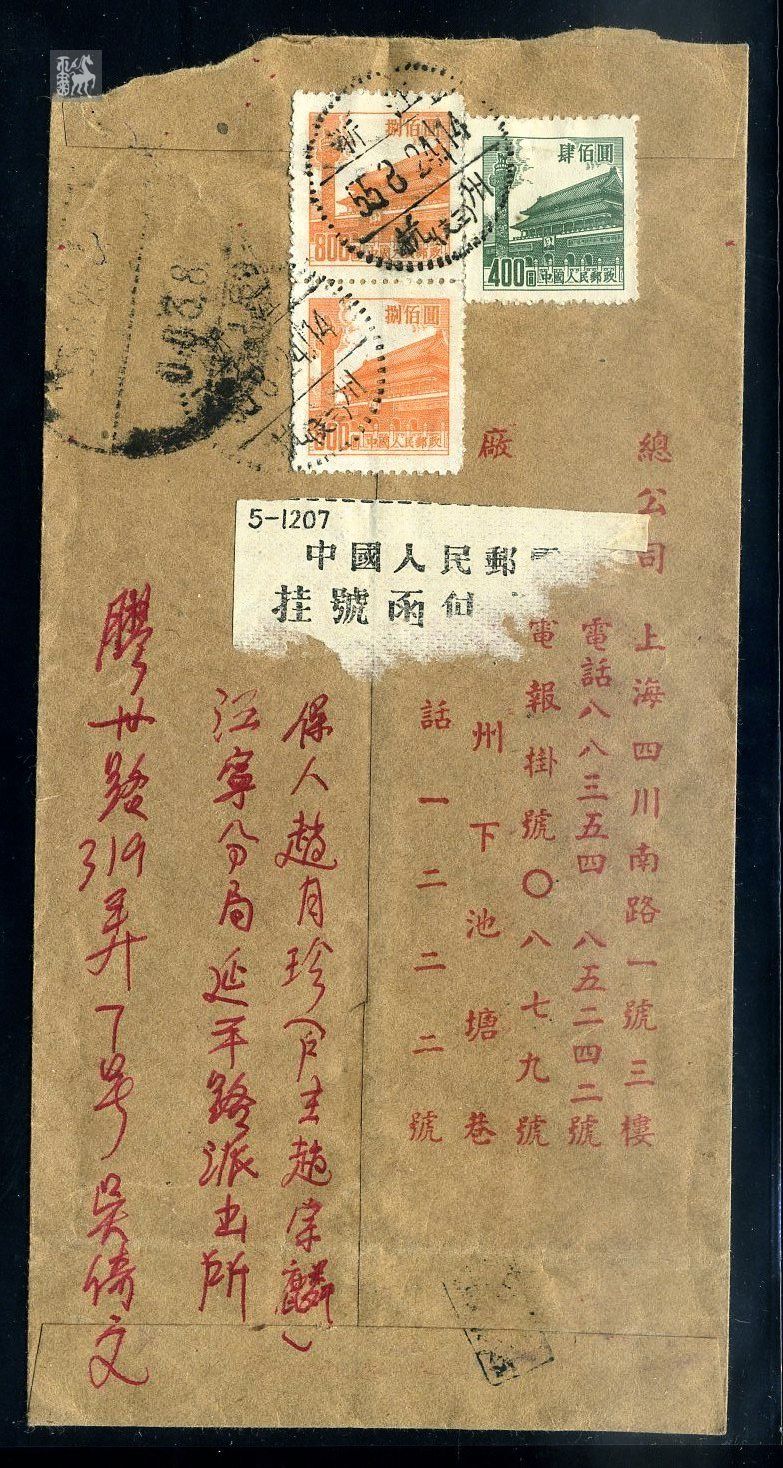 捌佰圓
800圓
中國人民郵政
浙江
55.8.24.14
杭州
捌佰圓
中國人民郵政
24.14
州
肆佰圓
400圓
中國人民郵政
5-1207
中國人民郵
挂號函件
總公司 上海四川南路一號三樓
電話八八三五四 八五二四二號
電報掛號〇八七九號
廠 州下池塘巷
話一二二二號
保人趙月珍(户主趙宗麟)
江寧分局延平路派出所
膠卅路319弄7号吴倚文